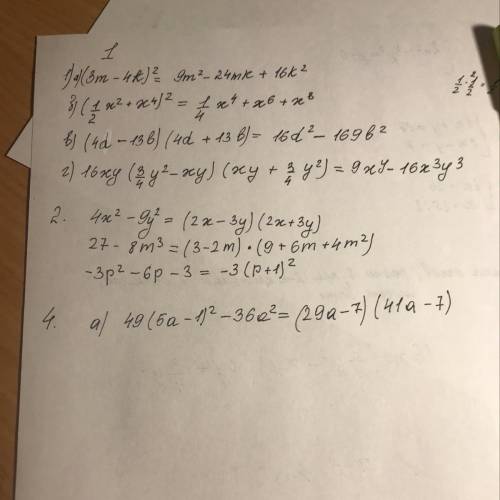 1
1) а) (3m - 4k)² = 9m² - 24mk + 16k²
б) (1/2 x² + x⁴)² = 1/4 x⁴ + x⁶ + x⁸
в) (4d - 13b) (4d + 13b) = 16d² - 169b²
г) 16xy (3/4 y² - xy) (xy + 3/4 y²) = 9xy⁵ - 16x³y³
2. 4x² - 9y² = (2x - 3y) (2x + 3y)
27 - 8m³ = (3 - 2m) · (9 + 6m + 4m²)
-3p² - 6p - 3 = -3 (p + 1)²
4. а) 49 (5a - 1)² - 36a² = (29a - 7) (41a - 7)